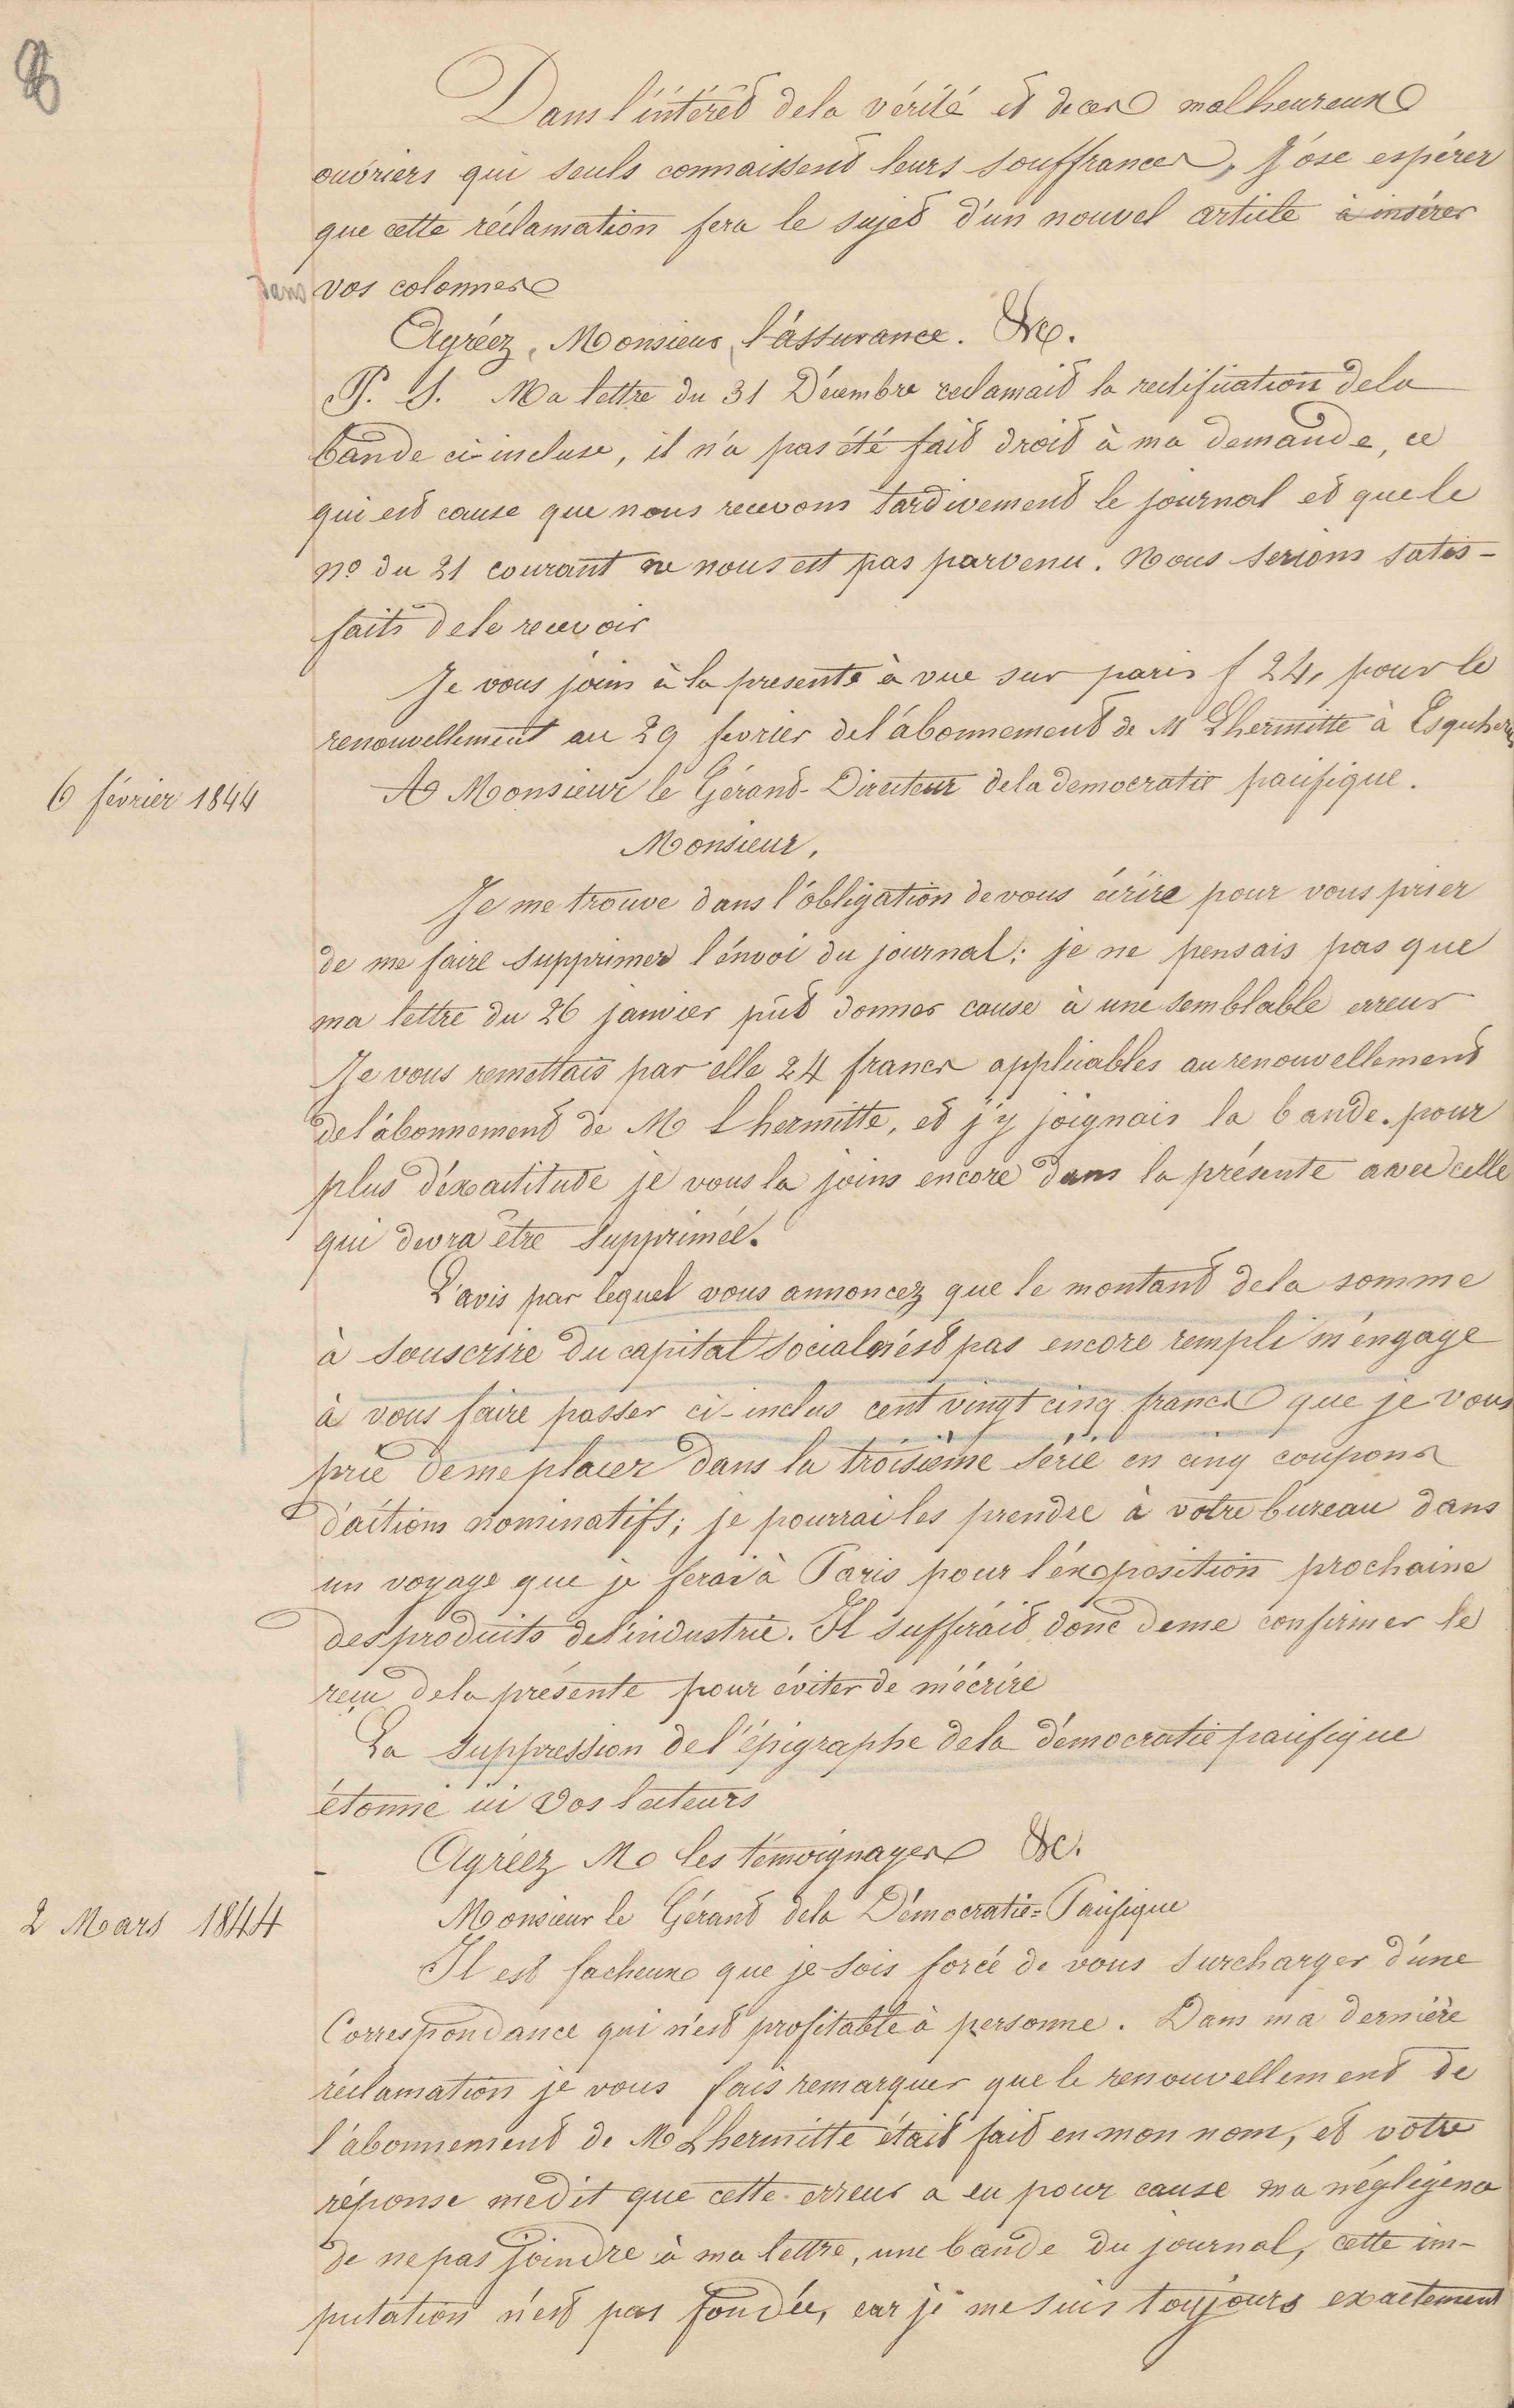 8
Dans l'intérêt dela vérité et de ces malheureux
ouvriers qui seuls connaissent leurs souffrances, j'ose espérer
que cette réclamation fera le sujet d'un nouvel article à insérer
dans vos colonnes
Agréez, Monsieur, l'assurance. &c.
P. S. Ma lettre du 31 Décembre reclamait la rectification dela
bande ci-incluse, il n'a pas été fait droit à ma demande, ce
qui est cause que nous recevons tardivement le journal et que le
no du 21 courant ne nous est pas parvenu. Nous serions satis-
faits de le recevoir
Je vous joins à la presente à vue sur paris f 24, pour le
renouvellement au 29 fevrier del'abonnement de M Lhermitte à Esquehéries
6 février 1844
A Monsieur le Gérant-Directeur dela democratie pacifique.
Monsieur,
Je me trouve dans l'obligation de vous écrire pour vous prier
de me faire supprimer l'envoi du journal: je ne pensais pas que
ma lettre du 26 janvier pût donner cause à une semblable erreur
Je vous remettais par elle 24 francs applicables au renouvellement
del'abonnement de M Lhermitte, et j'y joignais la bande. pour
plus d'exactitude je vous la joins encore dans la présente avec celle
qui devra être supprimée.
L'avis par lequel vous annoncez que le montant dela somme
à souscrire du capital social n'est pas encore rempli m'engage
à vous faire passer ci-inclus cent vingt cinq francs que je vous
prie de me placer dans la troisième série en cinq coupons
d'actions nominatifs; je pourrai les prendre à votre bureau dans
un voyage que je ferai à Paris pour l'exposition prochaine
des produits del'industrie. Il suffirait donc de me confirmer le
reçu dela présente pour éviter de m'écrire
La suppression del'épigraphe dela démocratie pacifique
étonne ici vos lecteurs
Agréez M les témoignages &c.
2 Mars 1844
Monsieur le Gérant dela Démocratie=Pacifique
Il est facheux que je sois forcé de vous surcharger d'une
Correspondance qui n'est profitable à personne. Dans ma dernière
réclamation je vous fais remarquer que le renouvellement de
l'abonnement de M Lhermitte était fait en mon nom, et votre
réponse me dit que cette erreur a eu pour cause ma négligence
de ne pas joindre à ma lettre, une bande du journal, cette im-
putation n'est pas fondée, car je me suis toujours exactement